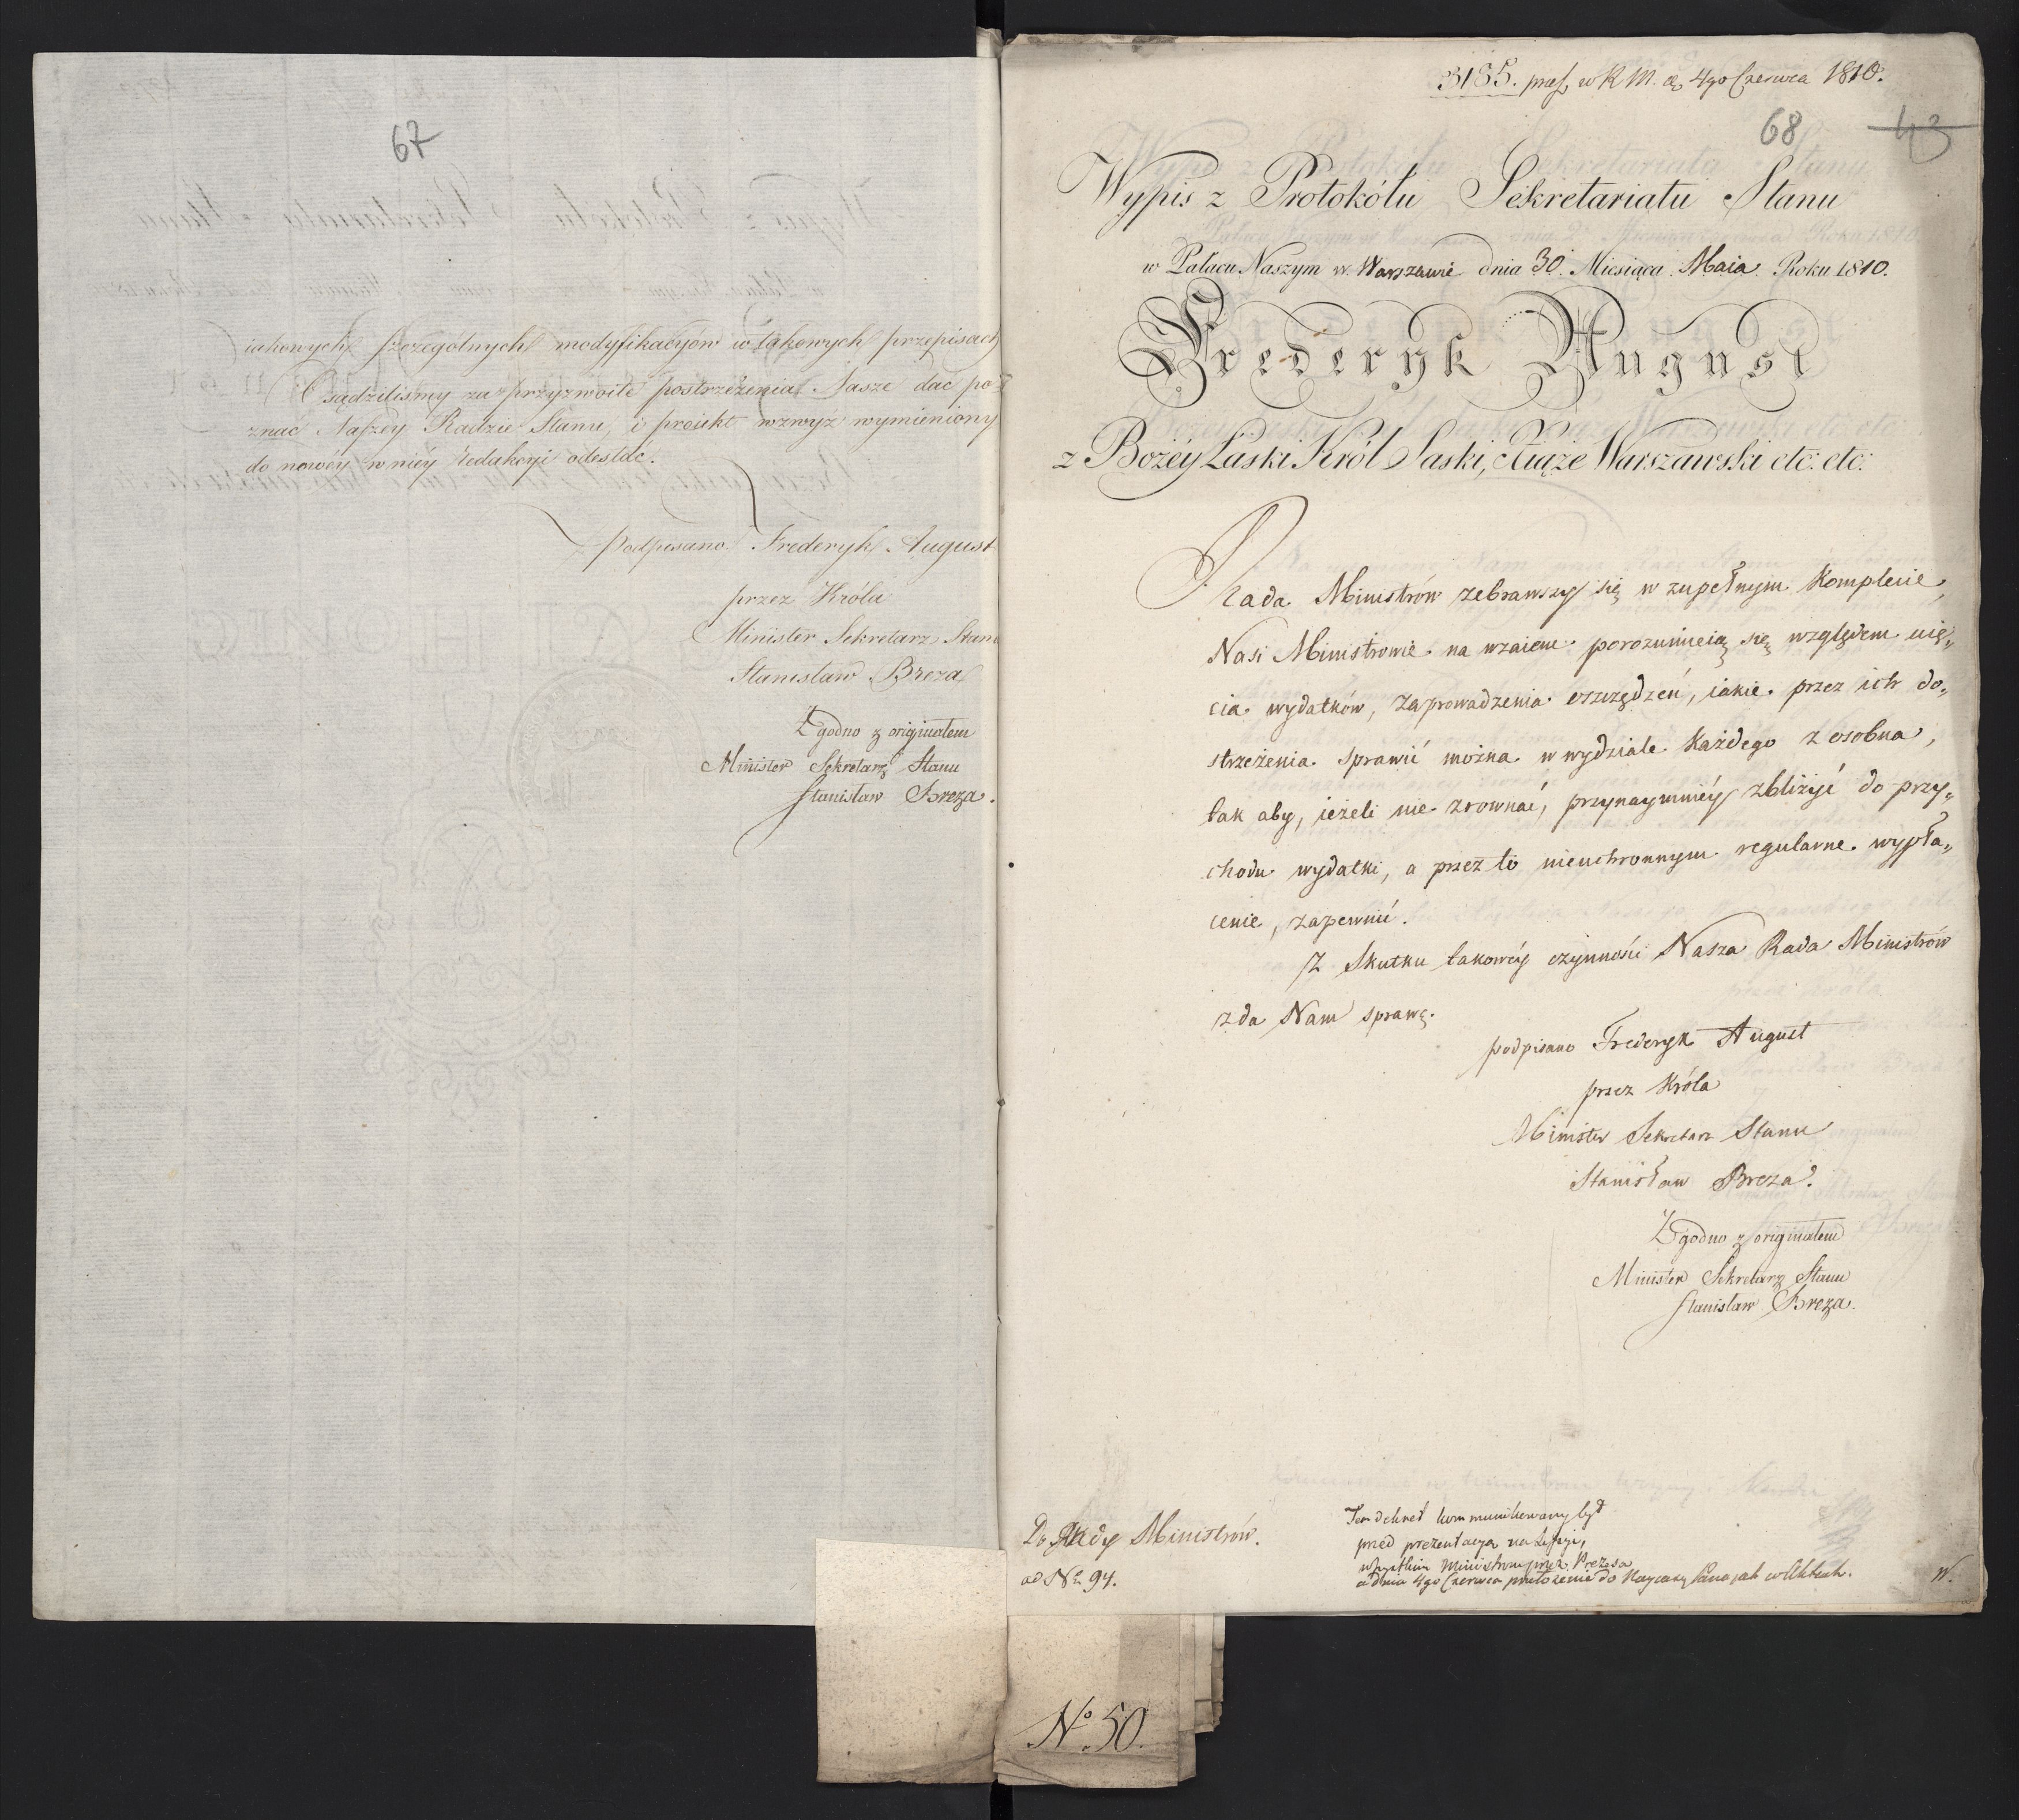 67
iakowych szczególnych modyfikacyów w takowych przepisach
Osądziliśmy za przyzwoite postrzeżenia Nasze dać po-
znać Naszey Radzie Stanu, i proiekt wzwyż wymieniony
do nowéy w niéy redakcyi odesłać.
Podpisano. Fryderyk August
przez Króla
Minister Sekretarz Stanu
Stanisław Breza
Zgodno z originałem
Minister Sekretarz Stanu
Stanisław Breza.
3185. praes. w R M. d. 4go Czerwca 1810.
68 43
Wypis z Protokółu Sekretariatu Stanu
w Pałacu Naszym w Warszawie dnia 30. Miesiąca Maia Roku 1810.
Frederyk August
z Bożéy Łaski Król Saski, Xiąże Warszawski etc: etc:
Rada Ministrów zebrawszy się w zupełnym Komplecie,
Nasi Ministrowie na wzaiem porozumieią się względem uię„
cia wydatków, zaprowadzenia oszczędzeń, iakie przez ich do„
strzeżenia sprawić można w wydziale każdego z osobna,
tak aby, ieżeli nie zrównać, przynaymniéy zbliżyć do przy„
chodu wydatki, a przez to nieuchronnym regularne wypła„
cenie, zapewnić.
Z skutku takowéy czynności Nasza Rada Ministrów
zda Nam sprawę.
podpisano Frederyk August
przez Króla
Minister Sekretarz Stanu
Stanisław Breza.
Zgodno z originałem
Minister Sekretarz Stanu
Stanisław Breza.
Do Rady Ministrów.
ad No 94.
Ten dekret kommunikowany był
przed prezentacyą na Sessyi,
wszystkim Ministrom przez Prezesa
a dnia 4go Czerwca przełożenie do Nayiaśn. Pana jak w Aktach.
W.
No. 50.